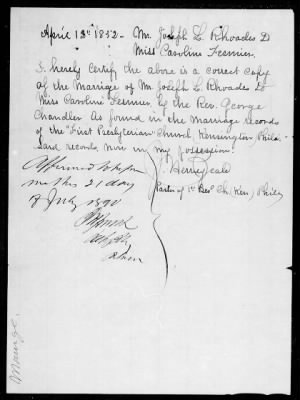 April 13th 1852 - Mr. Joseph L. Rhoades to
Miss Caroline Fesmier.
I hereby certify the above is a correct copy
of the Marriage of Mr. Joseph L. Rhoades to
Miss Caroline Fesmier, by the Rev. George
Chandler. As found in the Marriage records
of the "First Presbyterian" Church, Kensington, Phila.
Said records now in my possession.
Affirmed to before
me this 21 day
of July 1890
Pastor of 1st Pres. Ch. Ken, Phila
Marriage.